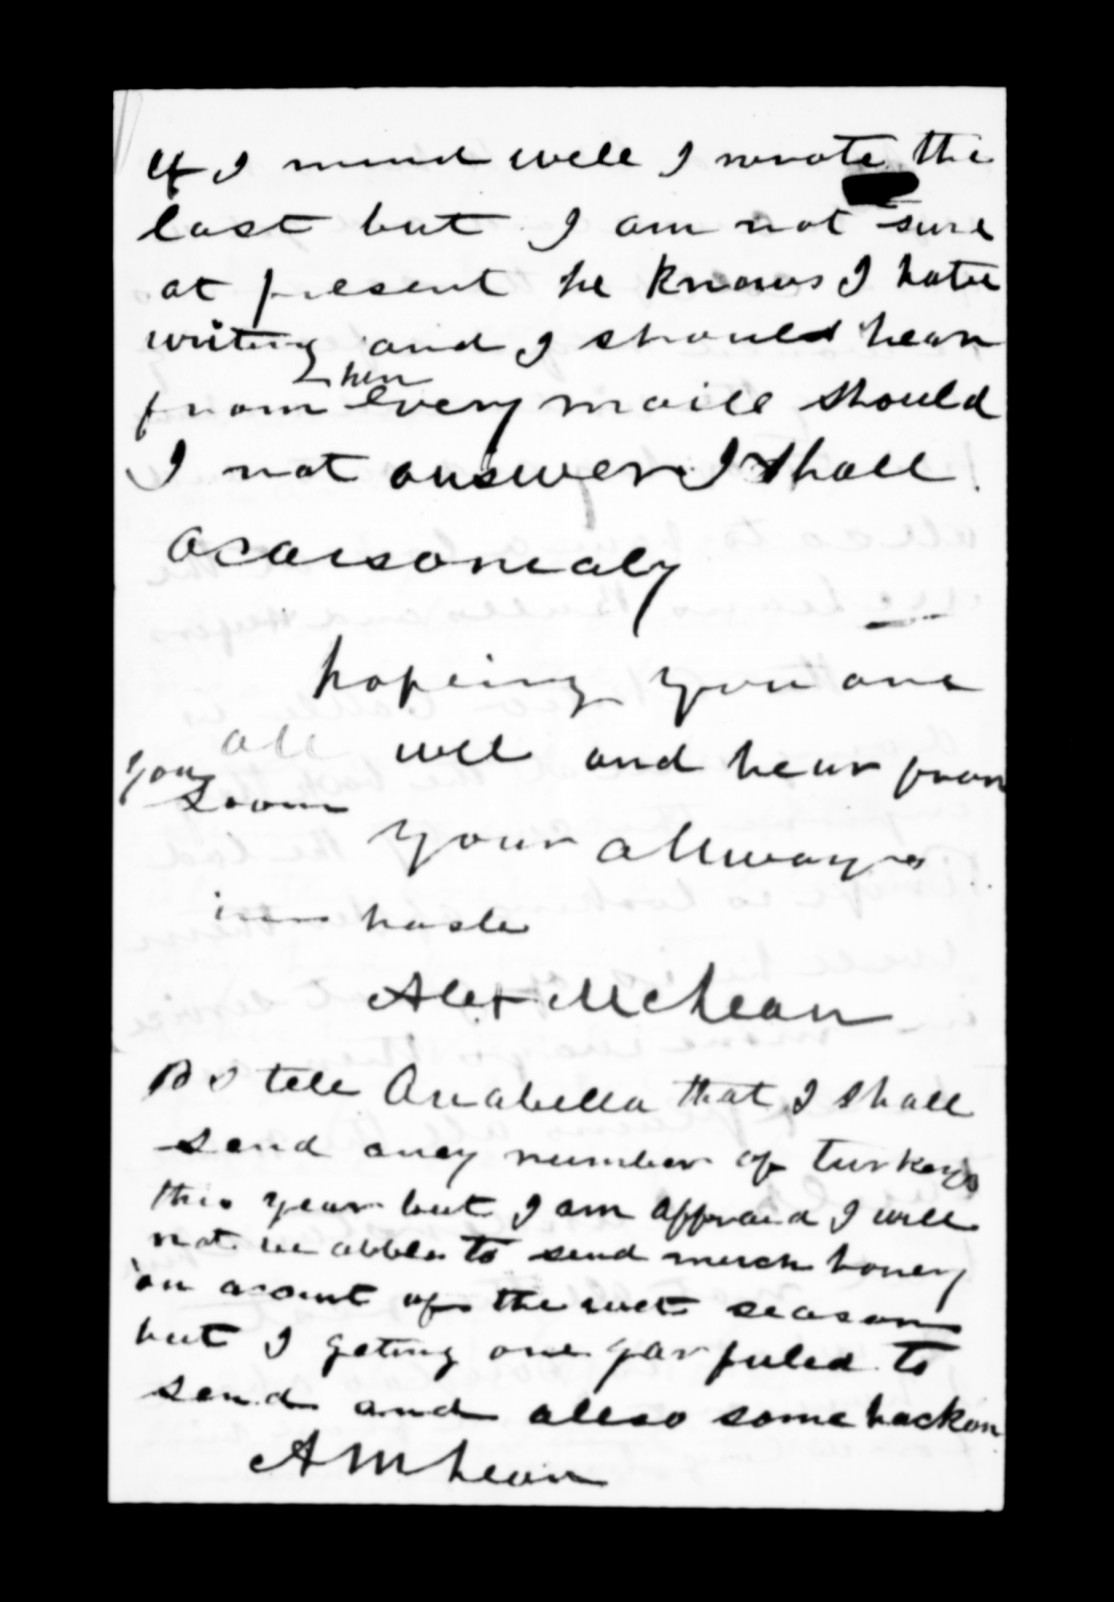 If I mind well I wrote the
last but I am not sure
at present he knows I hate
writing and I should hear
from him every maill should
I not answer I shall
ocaisonialy
hoping you are
all well and hear from
you soon
your allways
in haste
Alex McLean
PS tell Anabella that I shall
send aney number of turkeys
this year but I am affraid I will
not be abble to send much honey
on acount of the wet season
but I geting one jar fulled to
send and allso some backon
A McLean